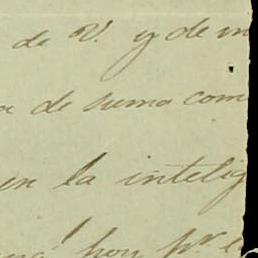 de V. y de m
a de suma com
en la intelig
hoy pr e